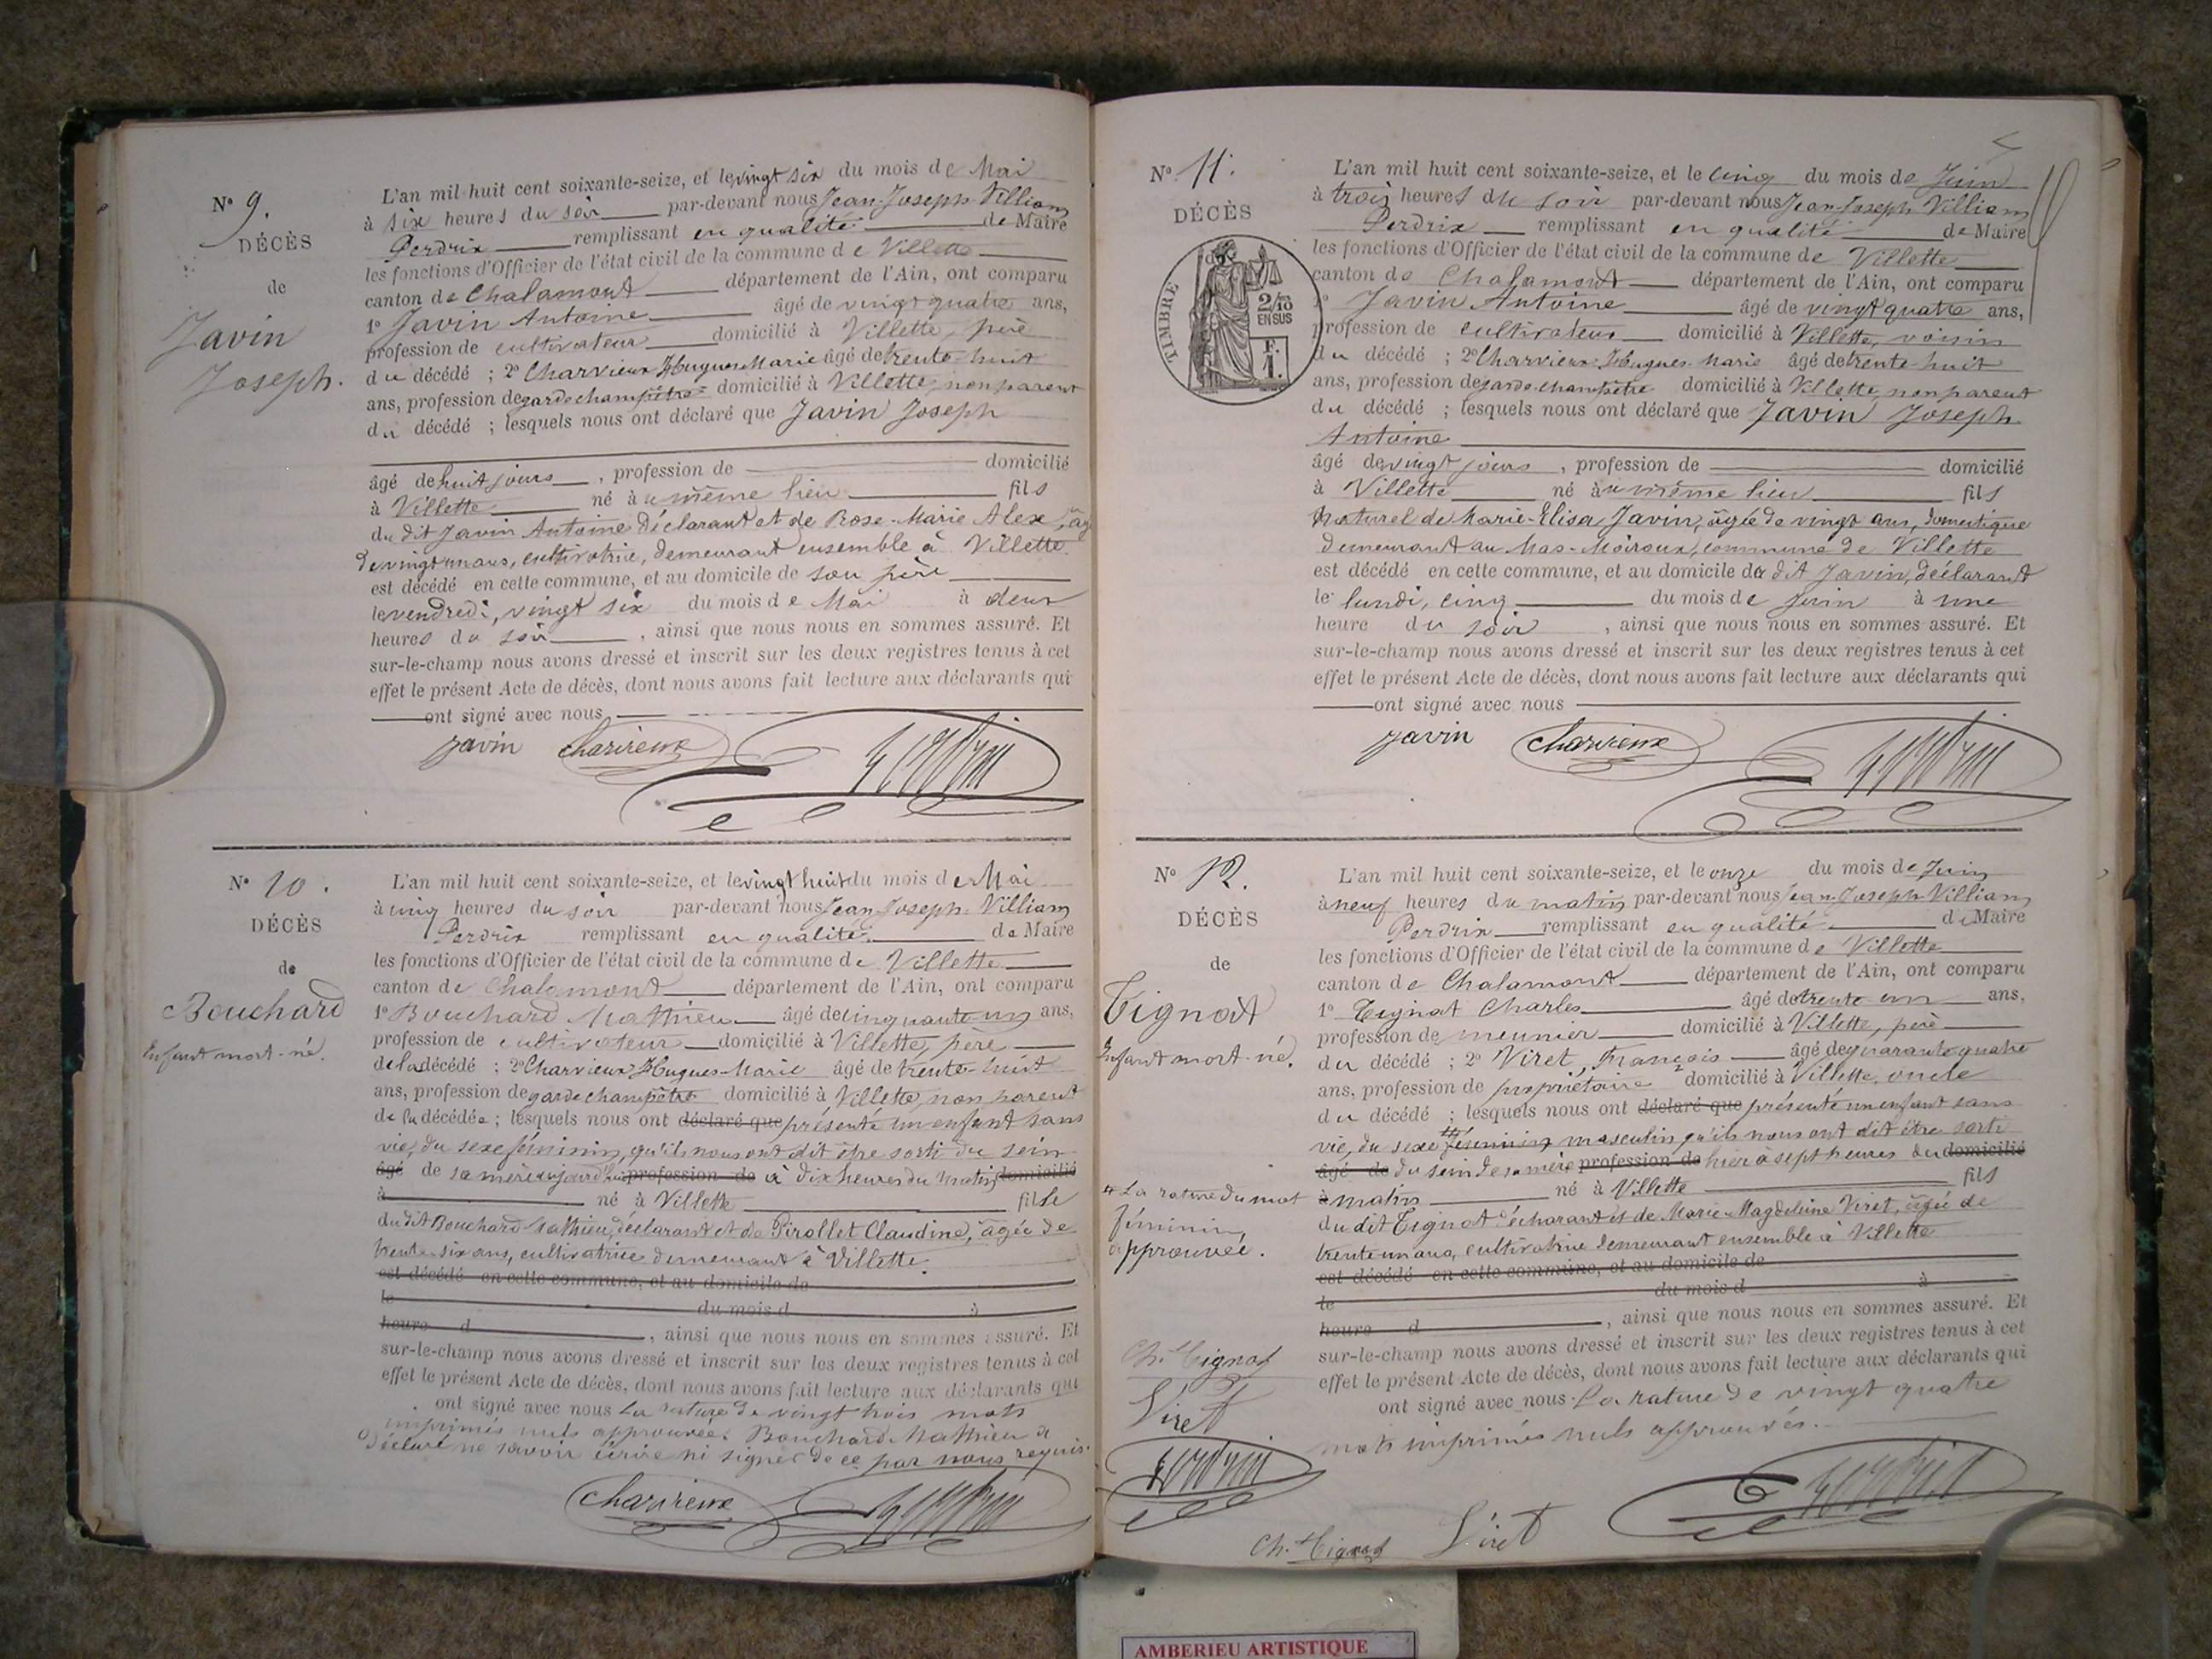 N° 9.
DÉCÈS
de
Javin
Joseph.
L'an mil huit cent soixante-seize, et le vingt six du mois de Mai
à six heures du soir par-devant nous Jean-Joseph-Villiam
Perdrix remplissant en qualité de Maire
les fonctions d'Officier de l'état civil de la commune de Villette
canton de Chalamont département de l'Ain, ont comparu
1° Javin Antoine âgé de vingt quatre ans,
profession de cultivateur domicilié à Villette, père
du décédé ; 2° Charvieux Hugues Marie âgé de trente-huit
ans, profession de garde champêtre domicilié à Villette, non parent
du décédé ; lesquels nous ont déclaré que Javin Joseph
âgé de huit jours, profession de domicilié
à Villette né au même lieu fils
du dit Javin Antoine déclarant et de Rose-Marie Alex, âg
de vingt un ans, cultivatrice, demeurant ensemble à Villette.
est décédé en cette commune, et au domicile de son père
le vendredi, vingt six du mois de Mai à deux
heures du soir, ainsi que nous nous en sommes assuré. Et
sur-le-champ nous avons dressé et inscrit sur les deux registres tenus à cet
effet le présent Acte de décès, dont nous avons fait lecture aux déclarants qui
ont signé avec nous
Javin Charvieux Perdrix
N° 10.
DÉCÈS
de
Bouchard
Enfant mort-né.
L'an mil huit cent soixante-seize, et le vingt huit du mois de Mai
à cinq heures du soir par-devant nous Jean-Joseph-Villiam
Perdrix remplissant en qualité de Maire
les fonctions d'Officier de l'état civil de la commune de Villette
canton de Chalamont département de l'Ain, ont comparu
1° Bouchard Mathieu âgé de cinquante-un ans,
profession de cultivateur domicilié à Villette, père
de la décédé ; 2° Charvieux Hugues-Marie âgé de trente-huit
ans, profession de garde champêtre domicilié à Villette, non parent
de la décédée ; lesquels nous ont déclaré que présenté un enfant sans
vie, du sexe féminin, qu'ils nous ont dit être sorti du sein
âgé de sa mère aujourd'hui profession de à dix heures du matin domicilié
à né à Villette fille
du dit Bouchard Mathieu, déclarant et de Pirollet Claudine, âgée de
trente-six ans, cultivatrice demeurant à Villette.
est décédé en cette commune, et au domicile de
le du mois d à
heure d, ainsi que nous nous en sommes assuré. Et
sur-le-champ nous avons dressé et inscrit sur les deux registres tenus à cet
effet le présent Acte de décès, dont nous avons fait lecture aux déclarants qui
ont signé avec nous La rature de vingt trois mots
imprimés nuls approuvée. Bouchard Mathieu a
déclaré ne savoir écrire ni signer de ce par nous requis.
Charvieux Perdrix
N° 11.
DÉCÈS
TIMBRE
2/10
EN SUS
F.
1.
L'an mil huit cent soixante-seize, et le cinq du mois de Juin
à trois heures du soir par-devant nous Jean-Joseph Villiam
Perdrix remplissant en qualité de Maire
les fonctions d'Officier de l'état civil de la commune de Villette
canton de Chalamont département de l'Ain, ont comparu
1° Javin Antoine âgé de vingt quatre ans,
profession de cultivateur domicilié à Villette, voisin
du décédé ; 2° Charvieux Hugues-Marie âgé de trente-huit
ans, profession de garde champêtre domicilié à Villette, non parent
du décédé ; lesquels nous ont déclaré que Javin Joseph
Antoine
âgé de vingt jours, profession de domicilié
à Villette né au même lieu fils
naturel de Marie-Elisa Javin, âgée de vingt ans, domestique
demeurant au Mas-Moiroux, commune de Villette
est décédé en cette commune, et au domicile du dit Javin, déclarant
le lundi, cinq du mois de Juin à une
heure du soir, ainsi que nous nous en sommes assuré. Et
sur-le-champ nous avons dressé et inscrit sur les deux registres tenus à cet
effet le présent Acte de décès, dont nous avons fait lecture aux déclarants qui
ont signé avec nous
Javin Charvieux Perdrix
N° 12.
DÉCÈS
de
Tignat
Enfant mort-né.
La rature du mot
féminin
approuvée.
Ch. Tignat
Viret
Perdrix
L'an mil huit cent soixante-seize, et le onze du mois de Juin
à neuf heures du matin par-devant nous Jean-Joseph Villiam
Perdrix remplissant en qualité de Maire
les fonctions d'Officier de l'état civil de la commune de Villette
canton de Chalamont département de l'Ain, ont comparu
1° Tignat Charles âgé de trente un ans,
profession de meunier domicilié à Villette, père
du décédé ; 2° Viret, François âgé de quarante quatre
ans, profession de propriétaire domicilié à Villette, oncle
du décédé ; lesquels nous ont déclaré que présenté un enfant sans
vie, du sexe féminin masculin qu'ils nous ont dit être sorti
âgé de du sein de sa mère profession de hier à sept heures du domicilié
à matin né à Villette fils
du dit Tignat déclarant et de Marie-Magdeleine Viret, âgée de
trente un ans, cultivatrice demeurant ensemble à Villette
est décédé en cette commune, et au domicile de
le du mois d à
heure d, ainsi que nous nous en sommes assuré. Et
sur-le-champ nous avons dressé et inscrit sur les deux registres tenus à cet
effet le présent Acte de décès, dont nous avons fait lecture aux déclarants qui
ont signé avec nous. La rature de vingt quatre
mots imprimés nuls approuvés.
Ch. Tignat Viret Perdrix
AMBERIEU ARTISTIQUE